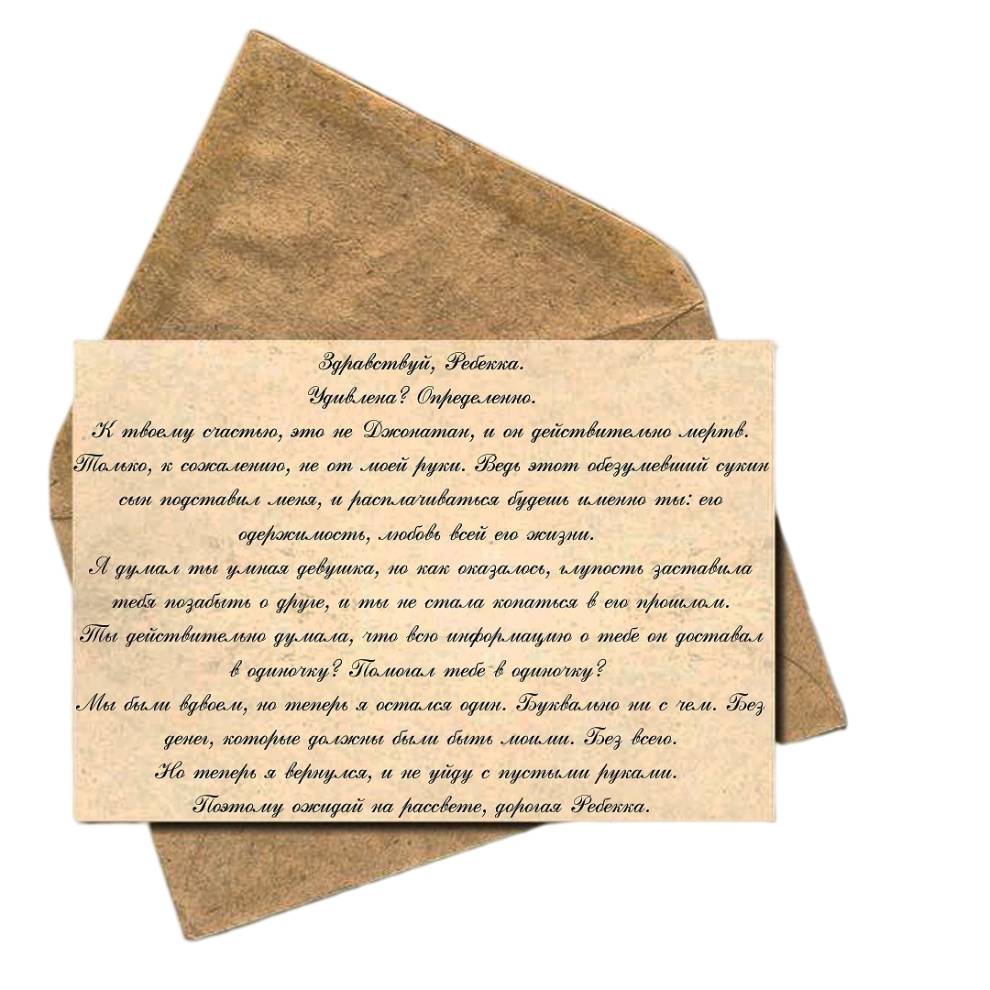 Здравствуй, Ребекка.
Удивлена? Определенно.
К твоему счастью, это не Джонатан, и он действительно мертв.
Только, к сожалению, не от моей руки. Ведь этот обезумевший сукин
сын подставил меня, и расплачиваться будешь именно ты: его
одержимость, любовь всей его жизни.
Я думал ты умная девушка, но как оказалось, глупость заставила
тебя позабыть о друге, и ты не стала копаться в его прошлом.
Ты действительно думала, что всю информацию о тебе он доставал
в одиночку? Помогал тебе в одиночку?
Мы были вдвоем, но теперь я остался один. Буквально ни с чем. Без
денег, которые должны были быть моими. Без всего.
Но теперь я вернулся, и не уйду с пустыми руками.
Поэтому ожидай на рассвете, дорогая Ребекка.